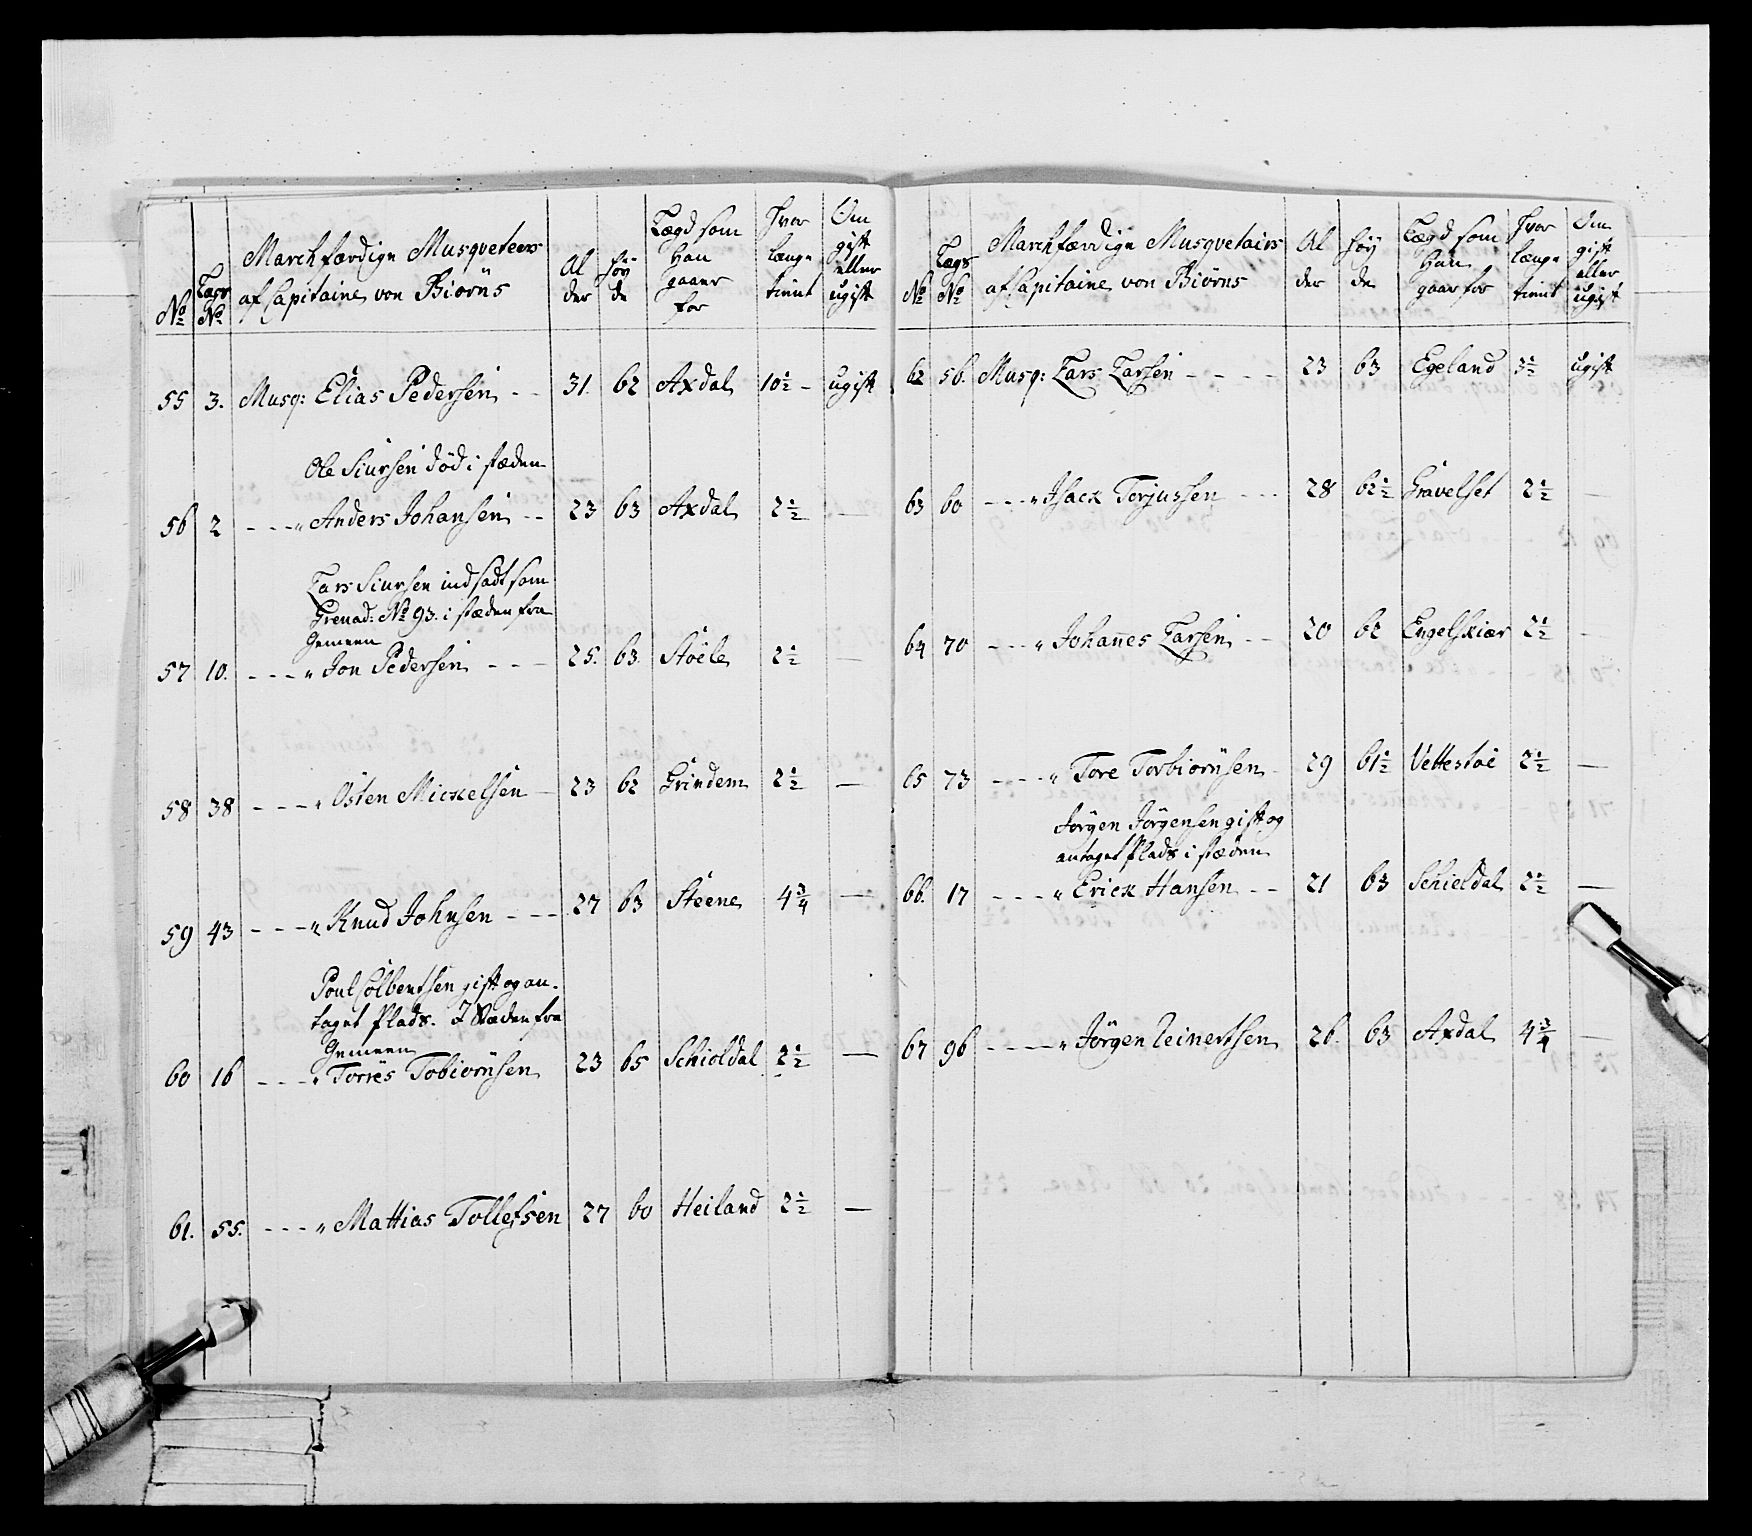 No | Lægs No | Marchfærdige Musqveteers af Capitaine von Biörns | Al der | Höy de | Lægd som Han gaaer for | Hvor længe tient | Om gift eller ugift
55 | 3. | Musq: Elias Pedersen | 31. | 62 | Axdal | 10½ | ugift
Ole Siursen död i stæden
56 | 2 | " Anders Johansen | 23 | 63 | Axdal | 2½ | —
Lars Siursen indsadt som
Grenad: No 93. i stæden fra
Gemeen
57 | 10. | " Jon Pedersen | 25. | 63. | Stöele | 2½ | —
58 | 38 | " Östen Mickelsen | 23 | 62 | Grindem | 2½ | —
59 | 43 | " Knud Johnsen | 27 | 63 | Steene | 4¾ | —
Poul Colbentsen gift og an-
taget Plads. I Stæden fra
Gemeen
60 | 16 | " Torres Tobiörnsen | 23 | 65 | Schioldal | 2½ | —
61. | 55. | " Mattias Tollefsen | 27 | 60 | Heiland | 2½ | —
No | Lægs No | Marchfærdige Musqvetairs af Capitaine von Biörns | Al der | Höy de | Lægd som Han gaar for | Hvor længe tient | Om gift eller ugift
62 | 56. | Musq: Lars Larsen | 23 | 63 | Egeland | 3½ | ugift
63 | 60 | " Isack Torjussen | 28 | 62½ | Gravelset | 2½ | —
64 | 70 | " Johañes Larsen | 20 | 62 | Engelskiær | 2½ | —
65 | 73 | " Tore Torbiörnsen | 29 | 61½ | Vettestöe | 2½ | —
Jörgen Jörgensen gift og
antaget Plads i stæden
66. | 17 | " Erick Hansen | 21 | 63 | Schieldal | 2½ | —
67 | 96 | " Jörgen Leinertsen | 26. | 63 | Axdal | 4¾ | —